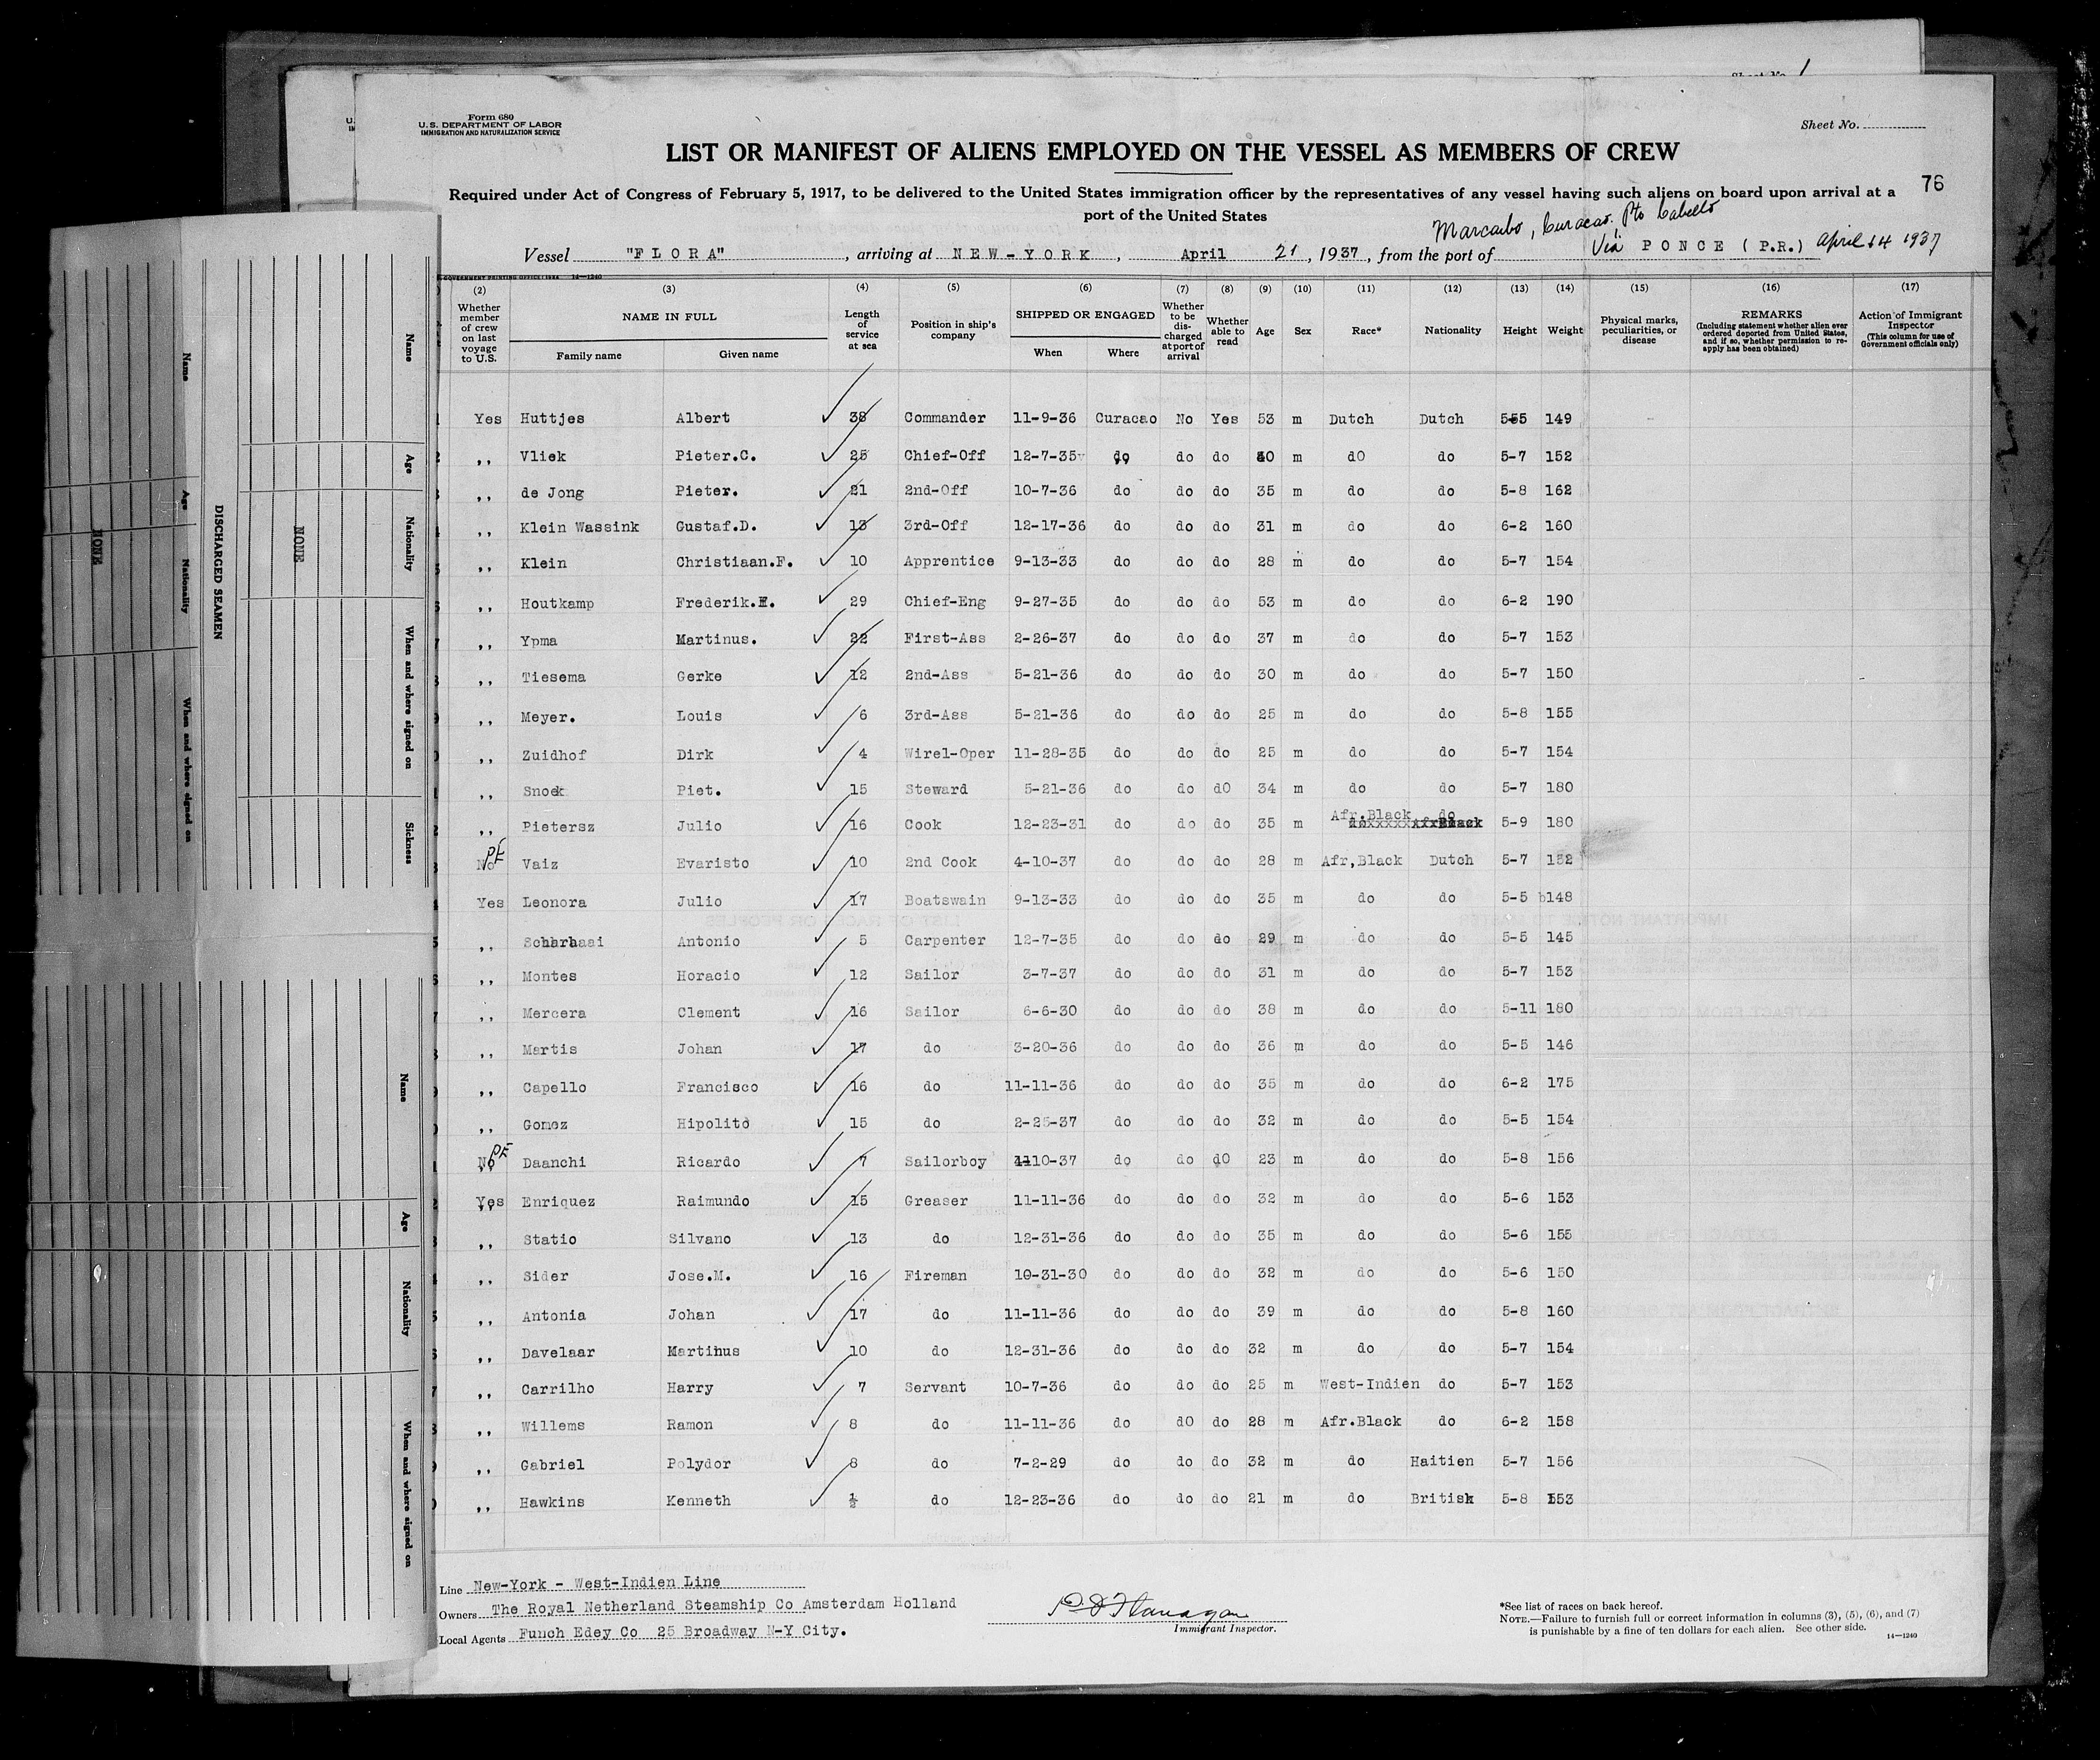 Sheet No. 1
Form 680
U.S. DEPARTMENT OF LABOR
IMMIGRATION AND NATURALIZATION SERVICE
Sheet No.
LIST OR MANIFEST OF ALIENS EMPLOYED ON THE VESSEL AS MEMBERS OF CREW
76
Required under Act of Congress of February 5, 1917, to be delivered to the United States immigration officer by the representatives of any vessel having such aliens on board upon arrival at a
port of the United States
Marcaibo, Curacao. Pto Cabello
Vessel "FLORA", arriving at NEW-YORK, April 21, 1937, from the port of Via PONCE (P.R.) April 14 1937
GOVERNMENT PRINTING OFFICE: 1936 14-1240
(2) (3) (4) (5) (6) (7) (8) (9) (10) (11) (12) (13) (14) (15) (16) (17)
Whether member of crew on last voyage to U.S.
NAME IN FULL
Family name Given name
Length of service at sea
Position in ship's company
SHIPPED OR ENGAGED
When Where
Whether to be dis-charged at port of arrival
Whether able to read
Age Sex Race* Nationality Height Weight
Physical marks, peculiarities, or disease
REMARKS
(Including statement whether alien ever ordered deported from United States, and if so, whether permission to re-apply has been obtained)
Action of Immigrant Inspector
(This column for use of Government officials only)
Yes Huttjes Albert 38 Commander 11-9-36 Curacao No Yes 53 m Dutch Dutch 5-5 149
,, Vliek Pieter.C. 25 Chief-Off 12-7-35 do do do 40 m dO do 5-7 152
,, de Jong Pieter. 21 2nd-Off 10-7-36 do do do 35 m do do 5-8 162
,, Klein Wassink Gustaf.D. 13 3rd-Off 12-17-36 do do do 31 m do do 6-2 160
,, Klein Christiaan.F. 10 Apprentice 9-13-33 do do do 28 m do do 5-7 154
,, Houtkamp Frederik.H. 29 Chief-Eng 9-27-35 do do do 53 m do do 6-2 190
,, Ypma Martinus. 22 First-Ass 2-26-37 do do do 37 m do do 5-7 153
,, Tiesema Gerke 12 2nd-Ass 5-21-36 do do do 30 m do do 5-7 150
,, Meyer. Louis 6 3rd-Ass 5-21-36 do do do 25 m do do 5-8 155
,, Zuidhof Dirk 4 Wirel-Oper 11-28-35 do do do 25 m do do 5-7 154
,, Snoek Piet. 15 Steward 5-21-36 do do dO 34 m do do 5-7 180
,, Pietersz Julio 16 Cook 12-23-31 do do do 35 m Afr.Black do 5-9 180
No PE Vaiz Evaristo 10 2nd Cook 4-10-37 do do do 28 m Afr,Black Dutch 5-7 152
Yes Leonora Julio 17 Boatswain 9-13-33 do do do 35 m do do 5-5 148
,, Scharbaai Antonio 5 Carpenter 12-7-35 do do do 29 m do do 5-5 145
,, Montes Horacio 12 Sailor 3-7-37 do do do 31 m do do 5-7 153
,, Mercera Clement 16 Sailor 6-6-30 do do do 38 m do do 5-11 180
,, Martis Johan 17 do 3-20-36 do do do 36 m do do 5-5 146
,, Capello Francisco 16 do 11-11-36 do do do 35 m do do 6-2 175
,, Gomez Hipolito 15 do 2-25-37 do do do 32 m do do 5-5 154
No PE Daanchi Ricardo 7 Sailorboy 4-10-37 do do dO 23 m do do 5-8 156
Yes Enriquez Raimundo 15 Greaser 11-11-36 do do do 32 m do do 5-6 153
,, Statio Silvano 13 do 12-31-36 do do do 35 m do do 5-6 155
,, Sider Jose.M. 16 Fireman 10-31-30 do do do 32 m do do 5-6 150
,, Antonia Johan 17 do 11-11-36 do do do 39 m do do 5-8 160
,, Davelaar Martinus 10 do 12-31-36 do do do 32 m do do 5-7 154
,, Carrilho Harry 7 Servant 10-7-36 do do do 25 m West-Indien do 5-7 153
,, Willems Ramon 8 do 11-11-36 do dO do 28 m Afr.Black do 6-2 158
,, Gabriel Polydor 8 do 7-2-29 do do do 32 m do Haitien 5-7 156
,, Hawkins Kenneth ½ do 12-23-36 do do do 21 m do British 5-8 153
Line New-York - West-Indien Line
Owners The Royal Netherland Steamship Co Amsterdam Holland
Local Agents Funch Edey Co 25 Broadway N-Y City.
P D Flanagan
Immigrant Inspector.
*See list of races on back hereof.
NOTE.—Failure to furnish full or correct information in columns (3), (5), (6), and (7)
is punishable by a fine of ten dollars for each alien. See other side.
14—1240
DISCHARGED SEAMEN
Name Age Nationality When and where signed on Sickness
NONE
Name Age Nationality When and where signed on
NONE
Name Age Nationality When and where signed on